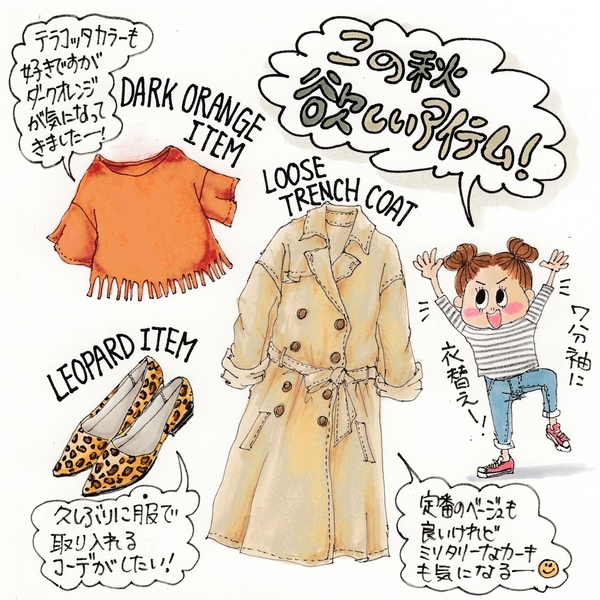 テラコッタカラーも
好きですが
ダークオレンジ
が気になって
きましたー!
DARK ORANGE
ITEM
この秋
欲しいアイテム!
LOOSE
TRENCH COAT
7分袖に
衣替えー!
LEOPARD ITEM
久しぶりに服で
取り入れる
コーデがしたい!
定番のベージュも
良いけれど
ミリタリーなカーキ
も気になるー